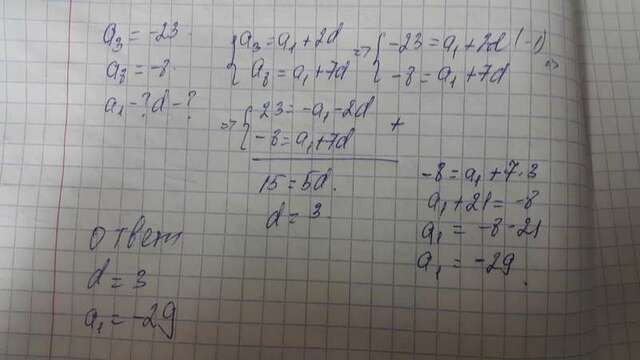 a₃ = -23
a₈ = -8
a₁ - ? d - ?
{ a₃ = a₁ + 2d
a₈ = a₁ + 7d
=> { -23 = a₁ + 2d | (-1)
-8 = a₁ + 7d =>
=> { 23 = -a₁ - 2d
-8 = a₁ + 7d +
15 = 5d.
d = 3
-8 = a₁ + 7·3
a₁ + 21 = -8
a₁ = -8 - 21
a₁ = -29.
ответ
d = 3
a₁ = -29